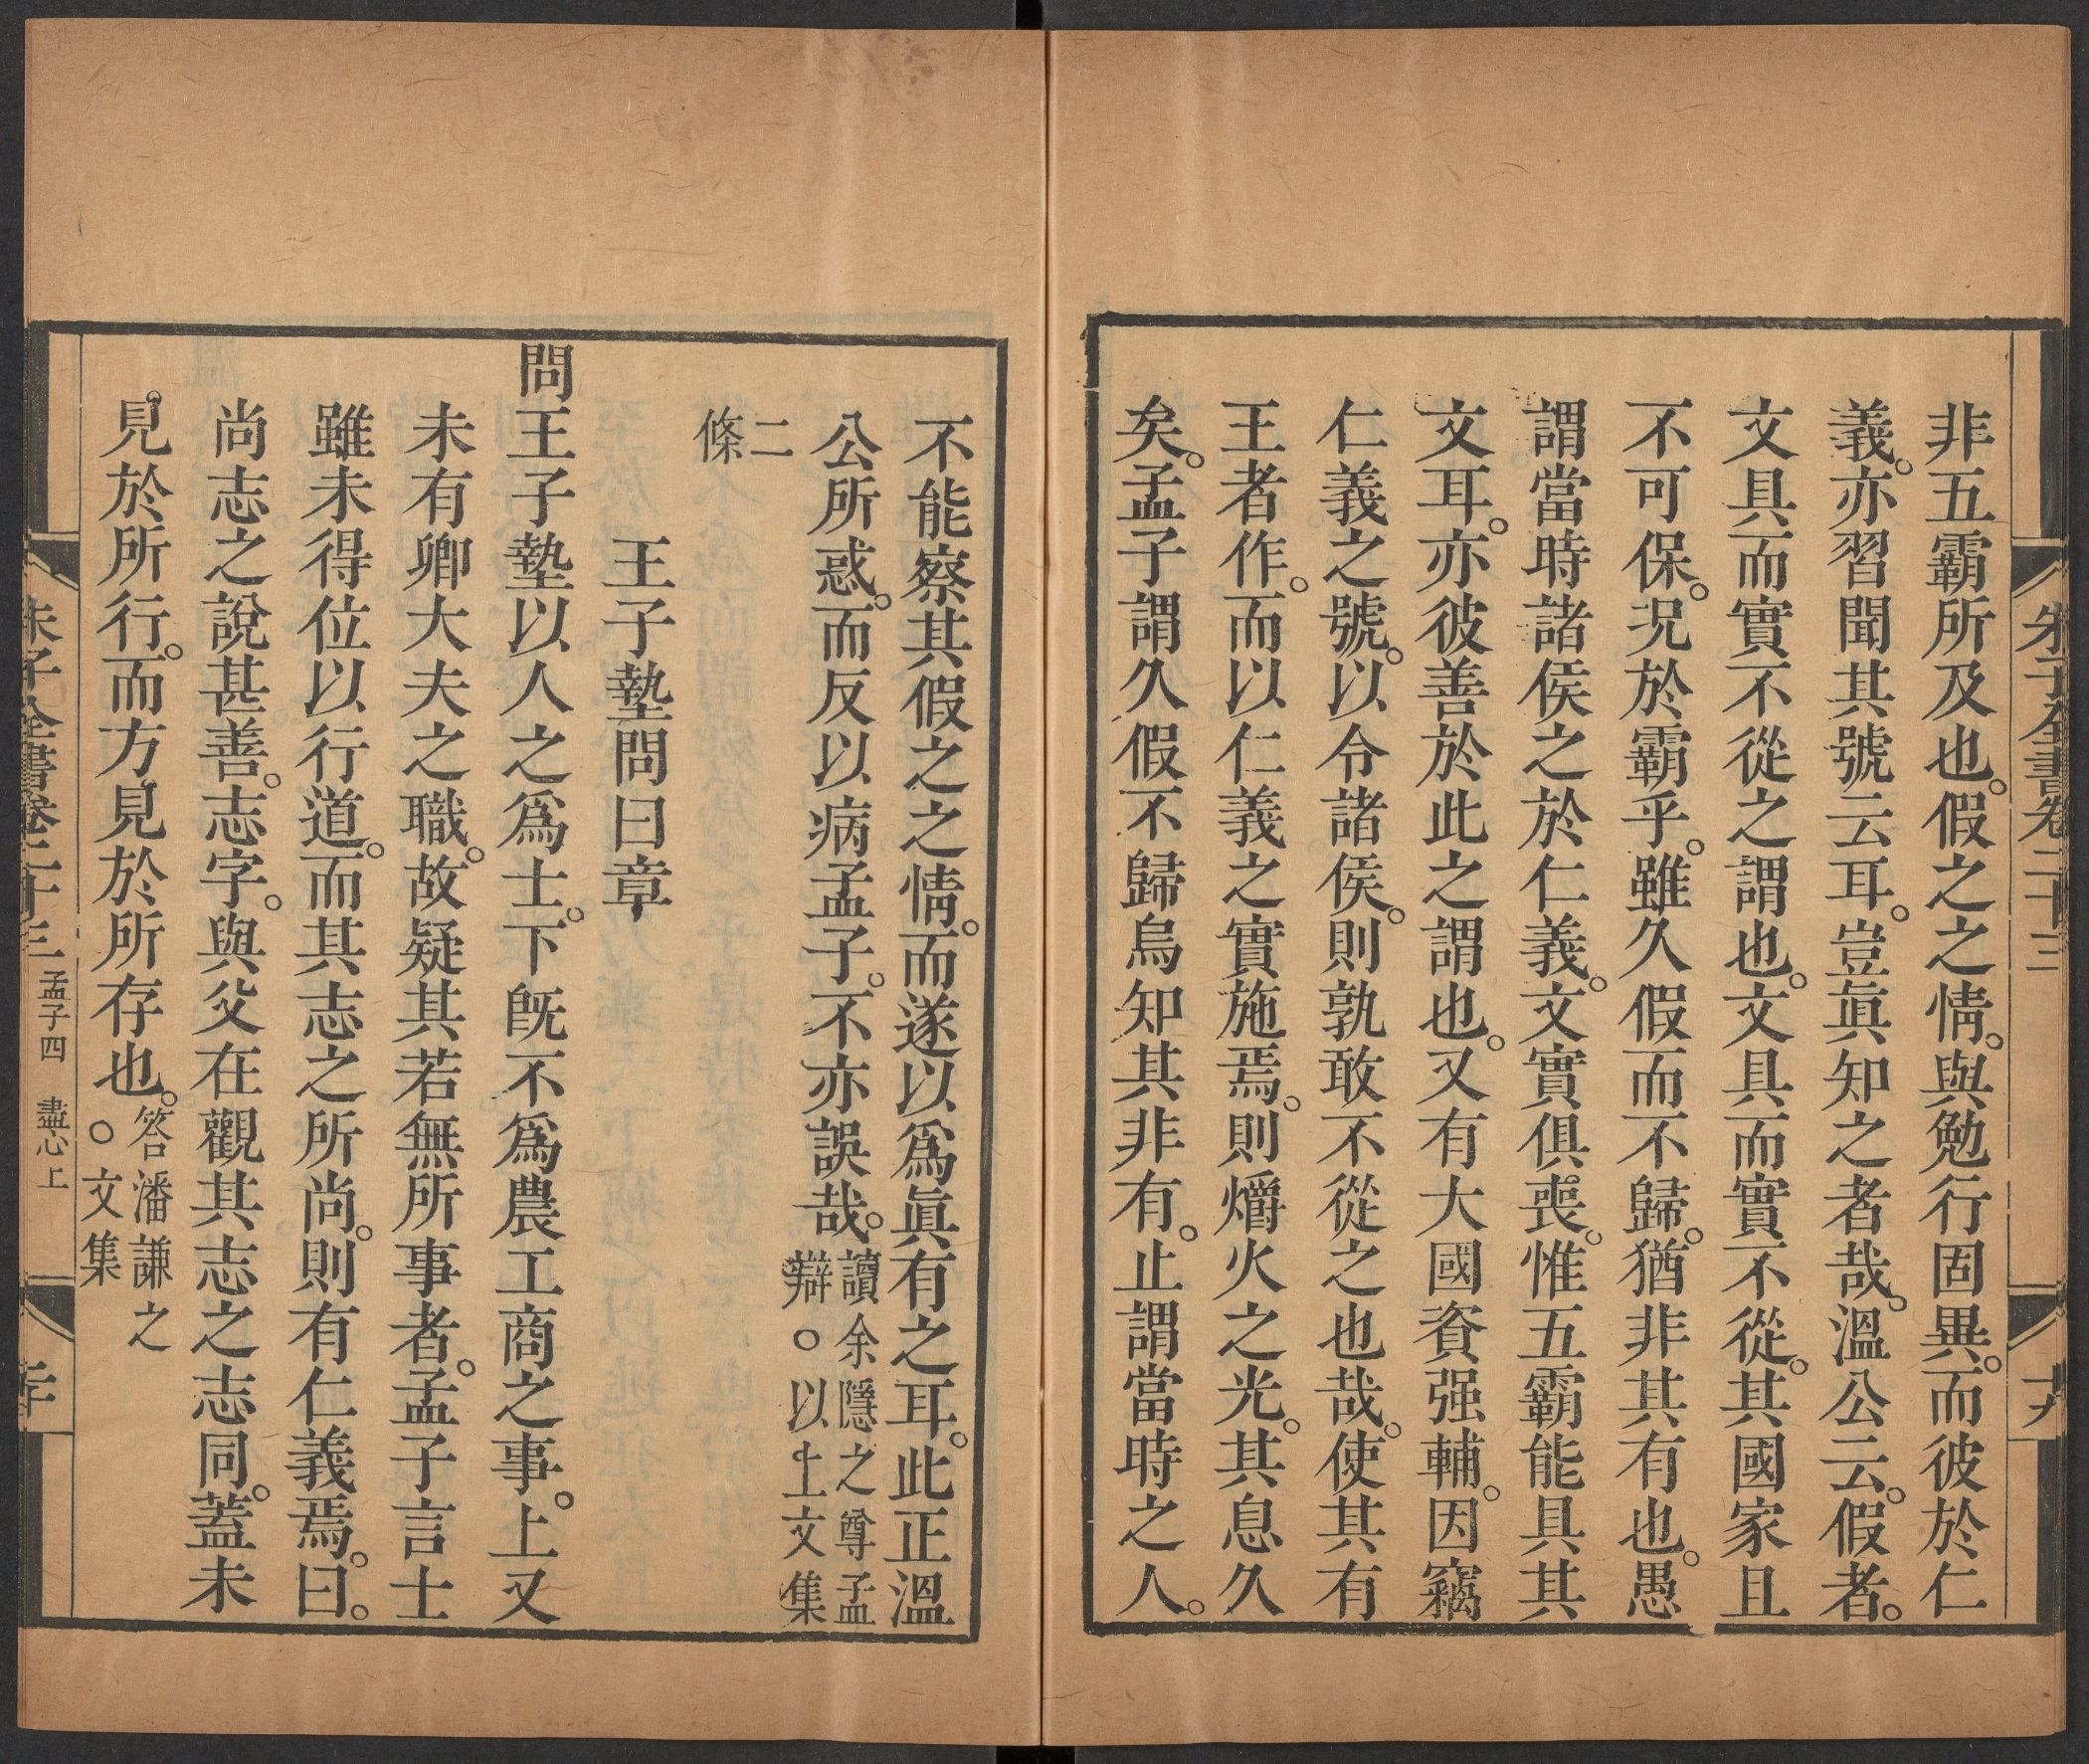 朱子全書卷二十三
十九
非五霸所及也。假之之情。與勉行固異。而彼於仁
義。亦習聞其號云耳。豈眞知之者哉。溫公云。假者。
文具而實不從之謂也。文具而實不從。其國家且
不可保。況於霸乎。雖久假而不歸。猶非其有也。愚
謂當時諸侯之於仁義。文實俱喪。惟五霸能具其
文耳。亦彼善於此之謂也。又有大國資强輔。因竊
仁義之號。以令諸侯。則孰敢不從之也哉。使其有
王者作。而以仁義之實施焉。則爝火之光。其息久
矣。孟子謂久假不歸烏知其非有。止謂當時之人。
不能察其假之之情。而遂以爲眞有之耳。此正溫
公所惑。而反以病孟子。不亦誤哉。讀余隱之尊孟
辯○以上文集
二
條
王子墊問曰章
問王子墊以人之爲士。下旣不爲農工商之事。上又
未有卿大夫之職。故疑其若無所事者。孟子言士
雖未得位以行道。而其志之所尚。則有仁義焉。曰。
尚志之說甚善。志字。與父在觀其志之志同。蓋未
見於所行。而方見於所存也。答潘謙之
○文集
朱子全書卷二十三 孟子四 盡心上
二十